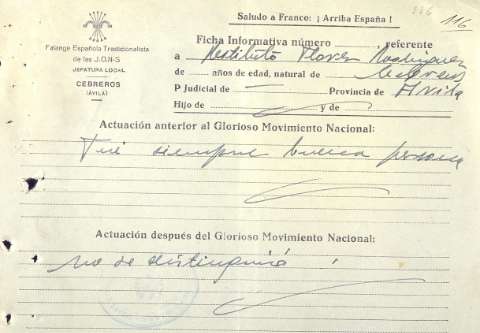 Saludo a Franco: ¡ Arriba España !
116
Falange Española Tradicionalista
de las J.O.N-S
JEFATURA LOCAL
CEBREROS
(ÁVILA)
Ficha Informativa número , referente
a Restituto Flores Rodriguez
de años de edad, natural de Cebreros
P Judicial de Provincia de Avila
Hijo de y de
Actuación anterior al Glorioso Movimiento Nacional:
Fué siempre buena persona
Actuación después del Glorioso Movimiento Nacional:
no se distinguió